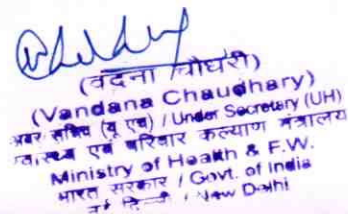 (वंदना चौधरी)
(Vandana Chaudhary)
अवर सचिव (यू एच) / Under Secretary (UH)
एवं परिवार कल्याण मंत्रालय
Ministry of Health & F.W.
भारत सरकार / Govt. of India
नई दिल्ली / New Delhi